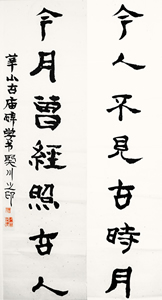 今人不見古時月
今月曾經照古人
華山古庙碑学书